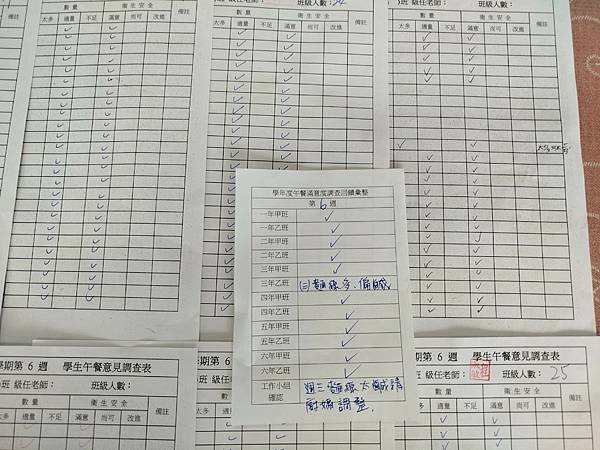 數量 衛生安全 備註
太多 適量 不足 滿意 尚可 改進
級任老師： 班級人數：24
數量 衛生安全 備註
太多 適量 不足 滿意 尚可 改進
)班 級任老師： 班級人數：
數量 衛生安全 備註
太多 適量 不足 滿意 尚可 改進
學年度午餐滿意度調查回饋彙整
第6週
一年甲班 ✓
一年乙班 ✓
二年甲班 ✓
二年乙班 ✓
三年甲班 ✓
三年乙班 (三)麵線多、偏鹹
四年甲班 ✓
四年乙班 ✓
五年甲班 ✓
五年乙班 ✓
六年甲班 ✓
六年乙班 ✓
工作小組確認 週三麵線太鹹請
廚媽調整.
學期第 6 週 學生午餐意見調查表
)班 級任老師： 班級人數：
數量 衛生安全 備註
太多 適量 不足 滿意 尚可 改進
第 6 週 學生午餐意見調查表
)班 級任老師： 25
數量 衛生安全 備註
太多 適量 不足 滿意 尚可 改進